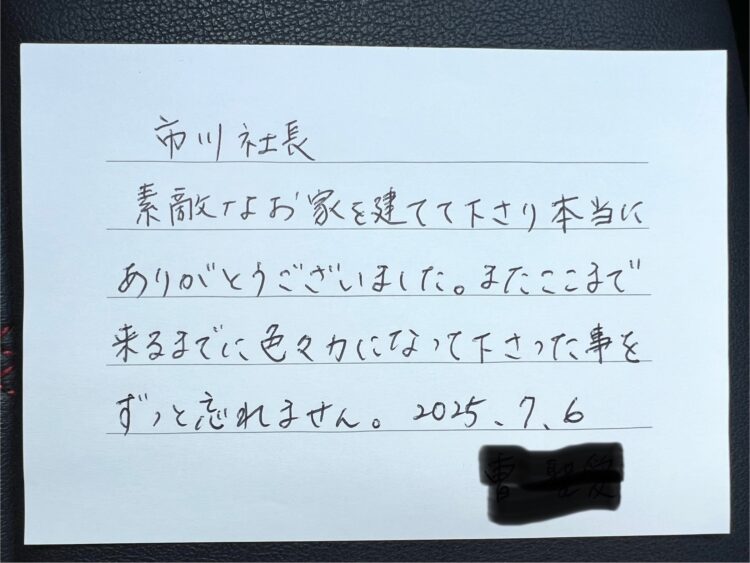 市川社長
素敵なお家を建てて下さり本当に
ありがとうございました。またここまで
来るまでに色々力になって下さった事を
ずっと忘れません。2025、7、6